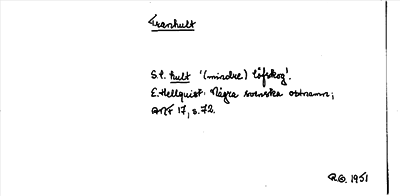 Tranhult
S.l. hult '(mindre) löfskog'.
E. Hellquist. Några svenska ortnamn;
ANF 17, s. 72.
R.G. 1951